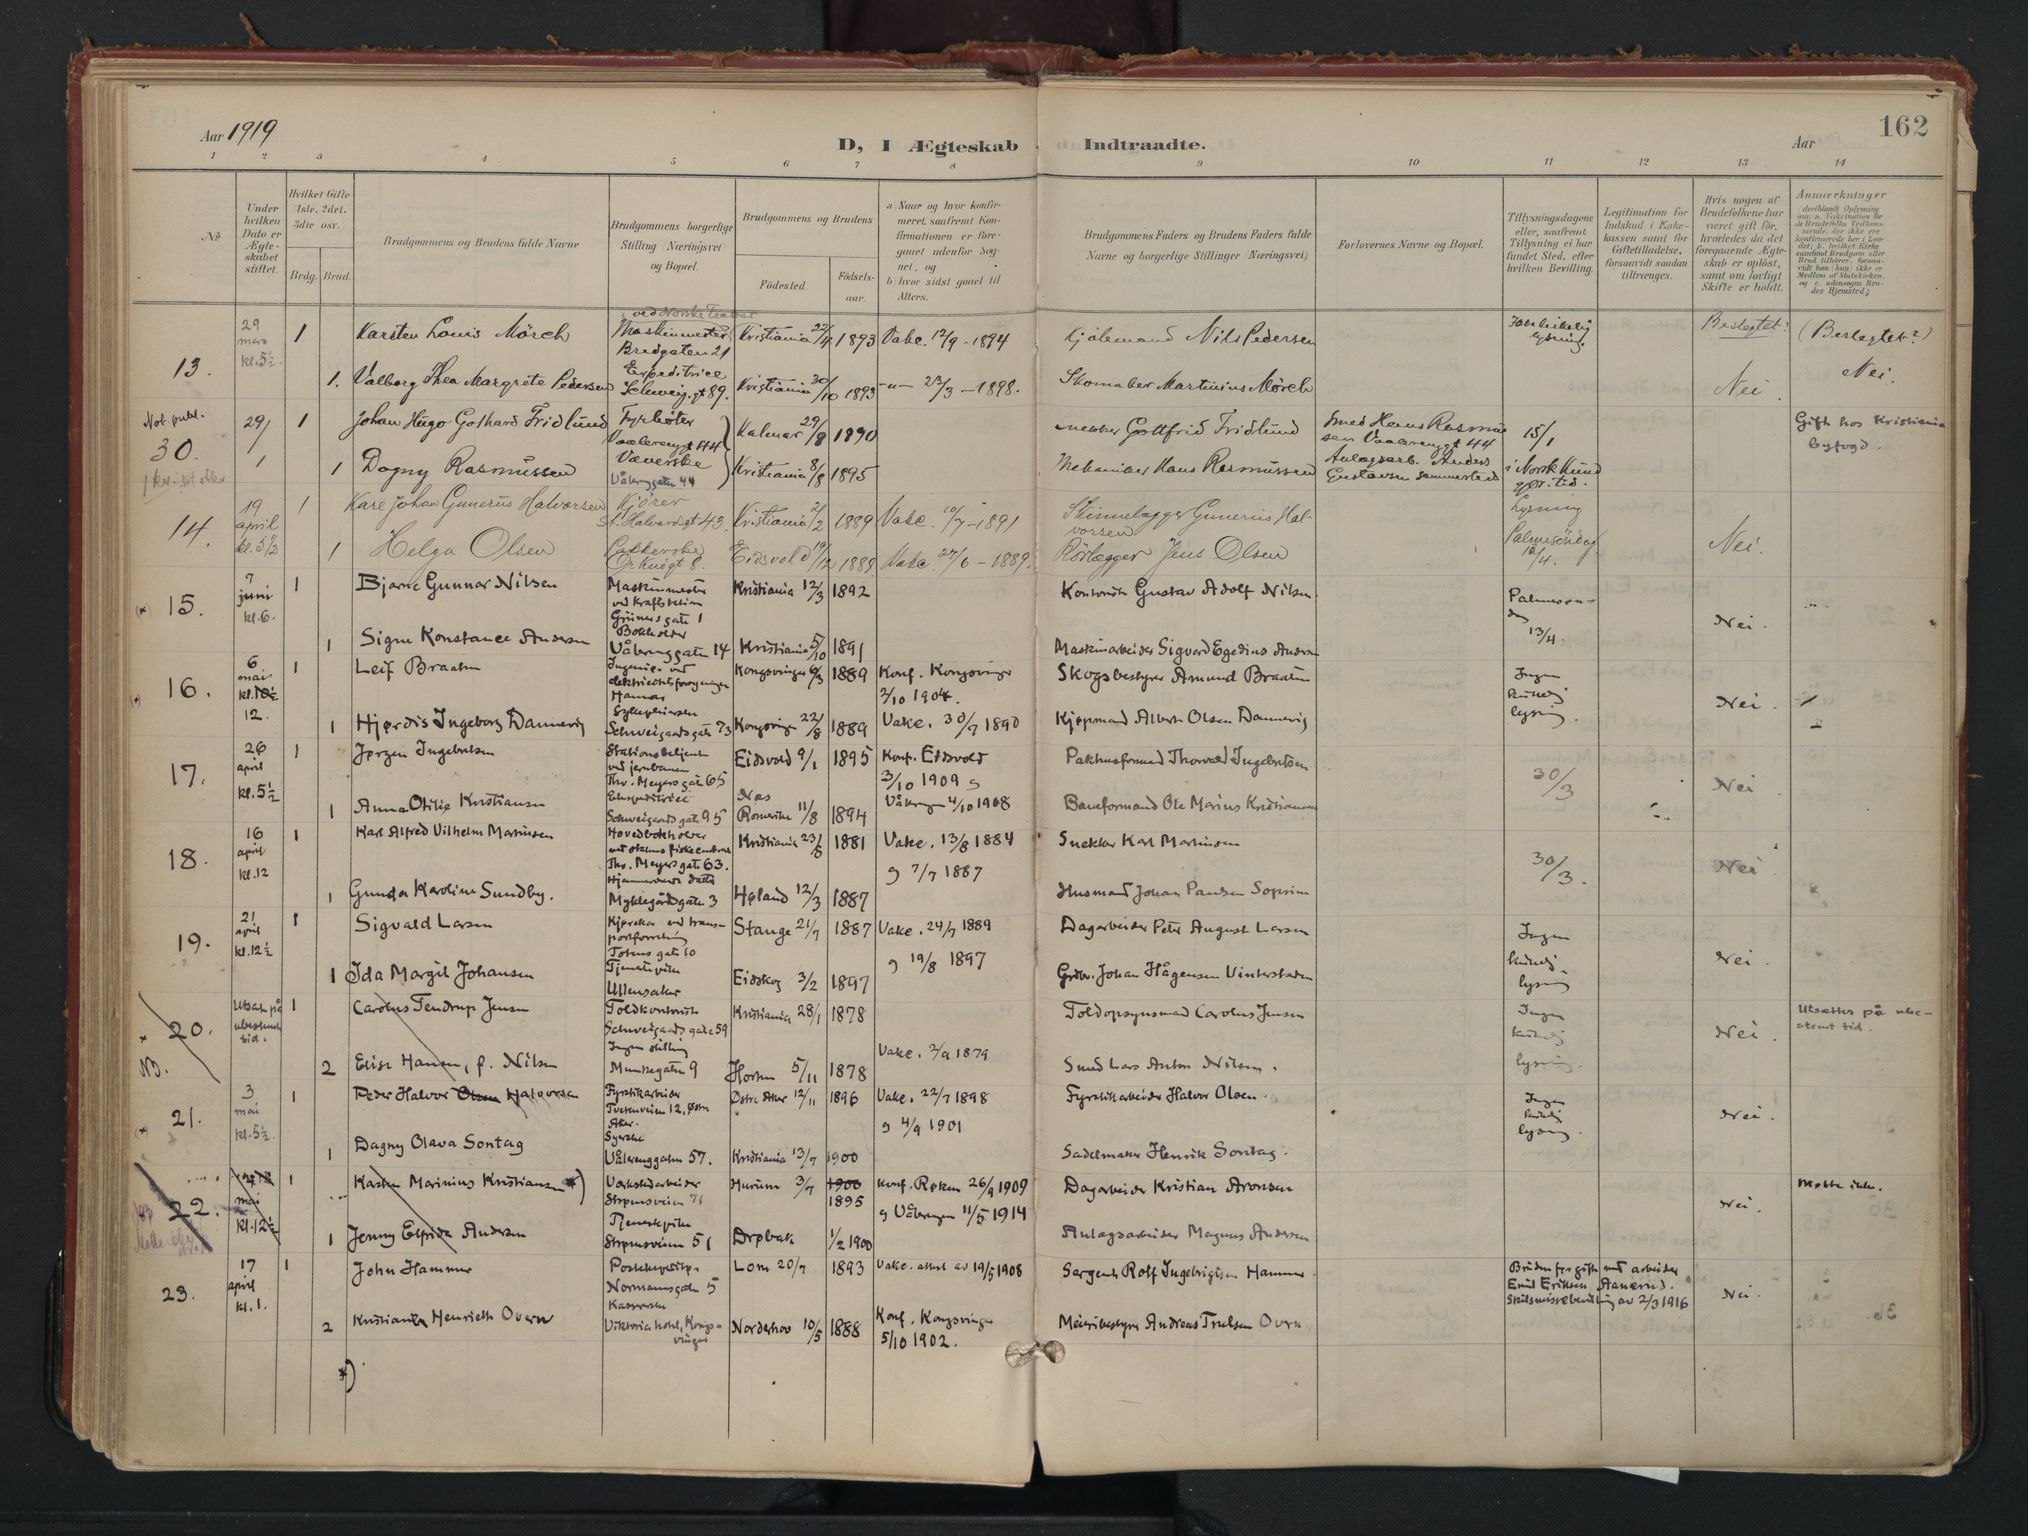 Aar 1919
D, I Ægteskab Indtraadte.
Aar
162
1 2 3 4 5 6 7 8 9 10 11 12 13 14
No.
Under hvilken Dato er Ægteskabet stiftet.
Hvilket Gifte 1ste. 2det. 3die osv.
Brdg. Brud.
Brudgommens og Brudens fulde Navne
Brudgommens borgerlige Stilling (Næringsvei) og Bopæl.
Brudgommens og Brudens
Fødested.
Fødselsaar.
a Naar og hvor konfirmeret, saafremt Konfirmationen er foregaaet udenfor Sognet, og
b hvor sidst gaaet til Alters.
Brudgommens Faders og Brudens Faders fulde Navne og borgerlige Stillinger (Næringsvei)
Forlovernes Navne og Bopæl.
Tillysningsdagene eller, saafremt Tillysning ei har fundet Sted, efter hvilken Bevilling.
Legitimation for Indskud i Enkekassen samt for Giftetilladelse, forsaavidt saadan tiltrænges.
Hvis nogen af Brudefolkene har været gift før, hvorledes da det foregaaende Ægteskab er opløst, samt om lovligt Skifte er holdt.
Anmerkninger
13. 29 mars kl. 5½ 1 Karsten Louis Mörch
ved Norske Teatret Maskinmester Bredgaten 21 Kristiania 22/4 1893 Vake. 12/9 - 1894
Nils Pedersen
Beslegtet? (Beslegtet?)
1. Valborg Thea Margrete Pedersen Expeditrice Schweig.gt 89. Kristiania 30/10 1893 -"- 23/3 - 1898.
Skomaker Martinius Mörch Nei. Nei.
Not. publ.
30. 29/1 1 Johan Hugo Gothard Fridlund Fyrbøter Vaalerengt 44 Kalmar 29/8 1890
Gottfrid Fridlund Smed Hans Rasmussen Vaalerengt 44 15/1 Gift hos Kristiania byfogd.
1 Dagny Rasmussen Væverske Vålerenggaten 44 Kristiania 8/8 1895
Mekaniker Hans Rasmussen Anlægsarb. Anders Gustavsen i Norsk Kund gjør. tid.
14. 19 april kl. 5½ 1 Kare Johan Gunerius Halvorsen Kjörer St. Halvardsgt 43. Kristiania 21/2 1889 Vake. 10/7 - 1891
Skinnelægger Gunerius Halvorsen Lysning Palmesöndag 13/4. Nei.
1 Helga Olsen Pakkerske Orknögt 8. Eidsvold 19/2 1889 Vake 27/6 - 1889.
Rörlægger Jens Olsen
15. 7 juni kl. 6. 1 Bjarne Gunnar Nilsen Maskinmester ved kraftstation Grüners gate 1 Kristiania 12/3 1892
Kontorist Gustav Adolf Nilsen Palmesøndag 13/4. Nei.
1 Signe Konstance Andersen Bokholder Vålerenggaten 14 Kristiania 5/10 1891
Maskinarbeider Sigvard Egedius Andersen
16. 6 mai kl. 12. 1 Leif Braaten Ingeniør ved elektricitetsforsyningen Hamar Kongsvinger 6/3 1889 Konf. Kongsvinger 2/10 1904.
Skogsbestyrer Amund Braaten Ingen kirkelig lysning. Nei.
1 Hjørdis Ingeborg Dannevig Sykepleiersken Schweigaards gate 73 Kongsvinger 22/8 1889 Vake. 30/7 1890
Kjøpmand Albert Olsen Dannevig
17. 26 april kl. 5½ 1 Jørgen Ingebretsen Stationsbetjent ved jernbanen Thv. Meyers gate 65 Eidsvold 9/1 1895 Konf. Eidsvold 3/10 1909
Pakhusformand Thorvald Ingebretsen 30/3 Nei.
1 Anna Otilie Kristiansen Ekspeditrice Schweigaards gate 95 Nes Romerike 11/8 1894 Vålerengen 4/10 1908
Baneformand Ole Marius Kristiansen
18. 16 april kl. 12 1 Karl Alfred Vilhelm Martinsen Hovedbokholder ved statens fiskecentral Thv. Meyers gate 63. Kristiania 23/8 1881 Vake. 13/8 1884
Snekker Karl Martinsen 30/3. Nei.
1 Gunda Karoline Sundby. Hjemmeværende datter Myklegårdgaten 3 Høland 12/3 1887 og 7/7 1887
Husmand Johan Paulsen
19. 21 april kl. 12½ 1 Sigvald Larsen Kjørekar ved transportforretning Totens gate 10 Stange 21/7 1887 Vake. 24/7 1889
Dagarbeider Peter August Larsen Ingen kirkelig lysning Nei.
1 Ida Margit Johansen Tjenestepike Ullensaker Eidskog 3/2 1897 og 19/8 1897
Grdbr. Johan Hågensen Vinterstaden
20. Utsatt på ubestemt tid. 1 Carolus Tendrup Jensen Toldkontorist Schweigaards gate 59 Kristiania 28/1 1878
Toldopsynsmand Carolus Jensen Ingen kirkelig lysning. Nei. Utsettes på ubestemt tid.
NB.
2 Elise Hansen, f. Nilsen Ingen stilling Munkegaten 9 Horten 5/11 1878 Vake. 2/9 1879
Smed Lars Anton Nilsen.
21. 3 mai kl. 5½. 1 Peder Halvor Olsen Halvorsen Fyrstikarbeider Tvetenveien 12, Østre Aker. Østre Aker 12/11 1896 Vake. 22/7 1898
Fyrstikarbeider Halvor Olsen. Ingen kirkelig lysning. Nei.
1 Dagny Olava Sontag Syerske Vålerenggaten 57. Kristiania 13/7 1900 og 4/9 1901
Sadelmaker Henrik Sontag.
22. mai kl. 12½ 1 Karsten Marinius Kristiansen *) Verkstedarbeider Strømsveien 71 Hurum 3/7 1900 1895 Konf. Røken 26/9 1909
Dagarbeider Kristian Aronsen Nei. Møtte ikke.
1 Jenny Elfrida Andersen Tjenestepike Strømsveien 51 Drøbak 1/2 1900 og Vålerengen 11/5 1914
Anlægsarbeider Magnus Andersen
23. 17 april kl. 1. 1 John Hammer Postekspeditør Normannsgaten 5 Lom 20/7 1893 Vake. attest av 19/5 1908
Sergent Rolf Ingebrigtsen Hammer. Bruden før gift med arbeider Emil Eriksen Aanerud. Skilsmissebevilling av 2/3 1916 Nei.
2 Kristiane Henriette Overn Kassererske Viktoria hotel, Kongsvinger Norderhov 10/5 1888 Konf. Kongsvinger 5/10 1902.
Meieribestyrer Andreas Truelsen Overn
*)